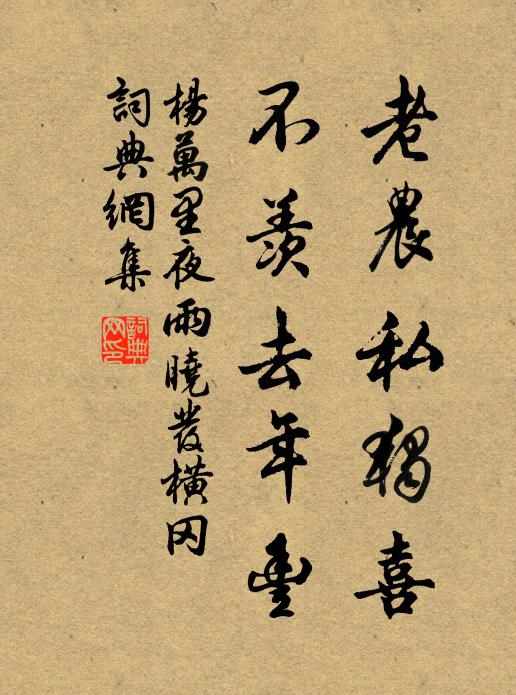 老農私獨喜
不羨去年豐
楊萬里夜雨曉發橫岡
詞典網集
詞典网印